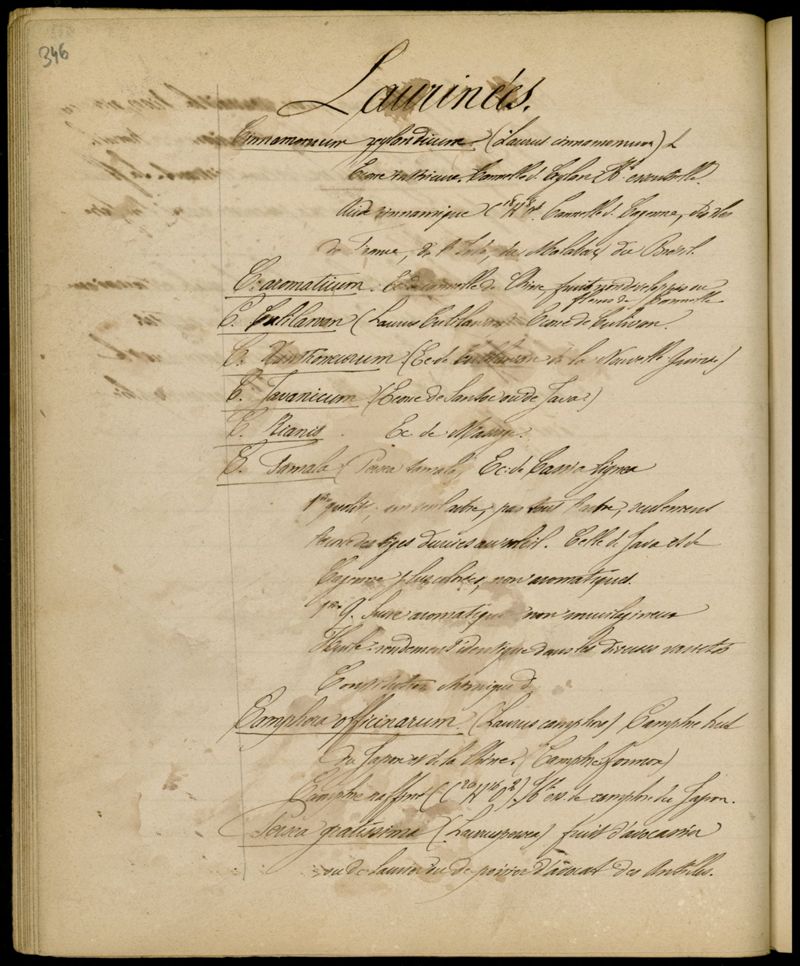 346
Laurinées.
Cinnamomum zylandicum (Laurus cinnamomum) L
Ecorce intérieure. Cannelle d. Ceylan. Hle essentielle.
Acide cinnamique (C18H8O4. Cannelle d. Cayenne, des Iles
de France, de l'Inde, du Malabar, du Brésil.
C. aromaticum. Ec. de cannelle de Chine, fruits non développés ou
fleurs de Cannelle
C. Culilawan (Laurus Culilawan) Ecorce de Culilawan.
C. Xanthoneurum (Ec. de Culilawan de la Nouvelle Guinée)
C. Javanicum (Ecorce de Sintoc ou de Java?)
C. Kianis . Ec. de Massoy.
C. Tamala (Persea tamala) Ec. de Cassia lignea
1ère qualité, un seul arbre, pas tout l'arbre, seulement
écorce des tiges durcies au soleil. Celle d. Java et de
Cayenne plus colorées, non aromatiques
1ère Q. Suave aromatique non mucilagineux
Huile: rendement identique dans les diverses variétés
Constitution chimique d
Camphora officinarum (Laurus camphora) Camphre brut
du Japon et de la Chine. (Camphre formosa)
Camphre raffiné (C20H16O2). Hle ess. de camphre du Japon.
Persea gratissima (Laurus persea) fruit d'avocatier
ou de Laurier ou de poirier d'avocat des Antilles.